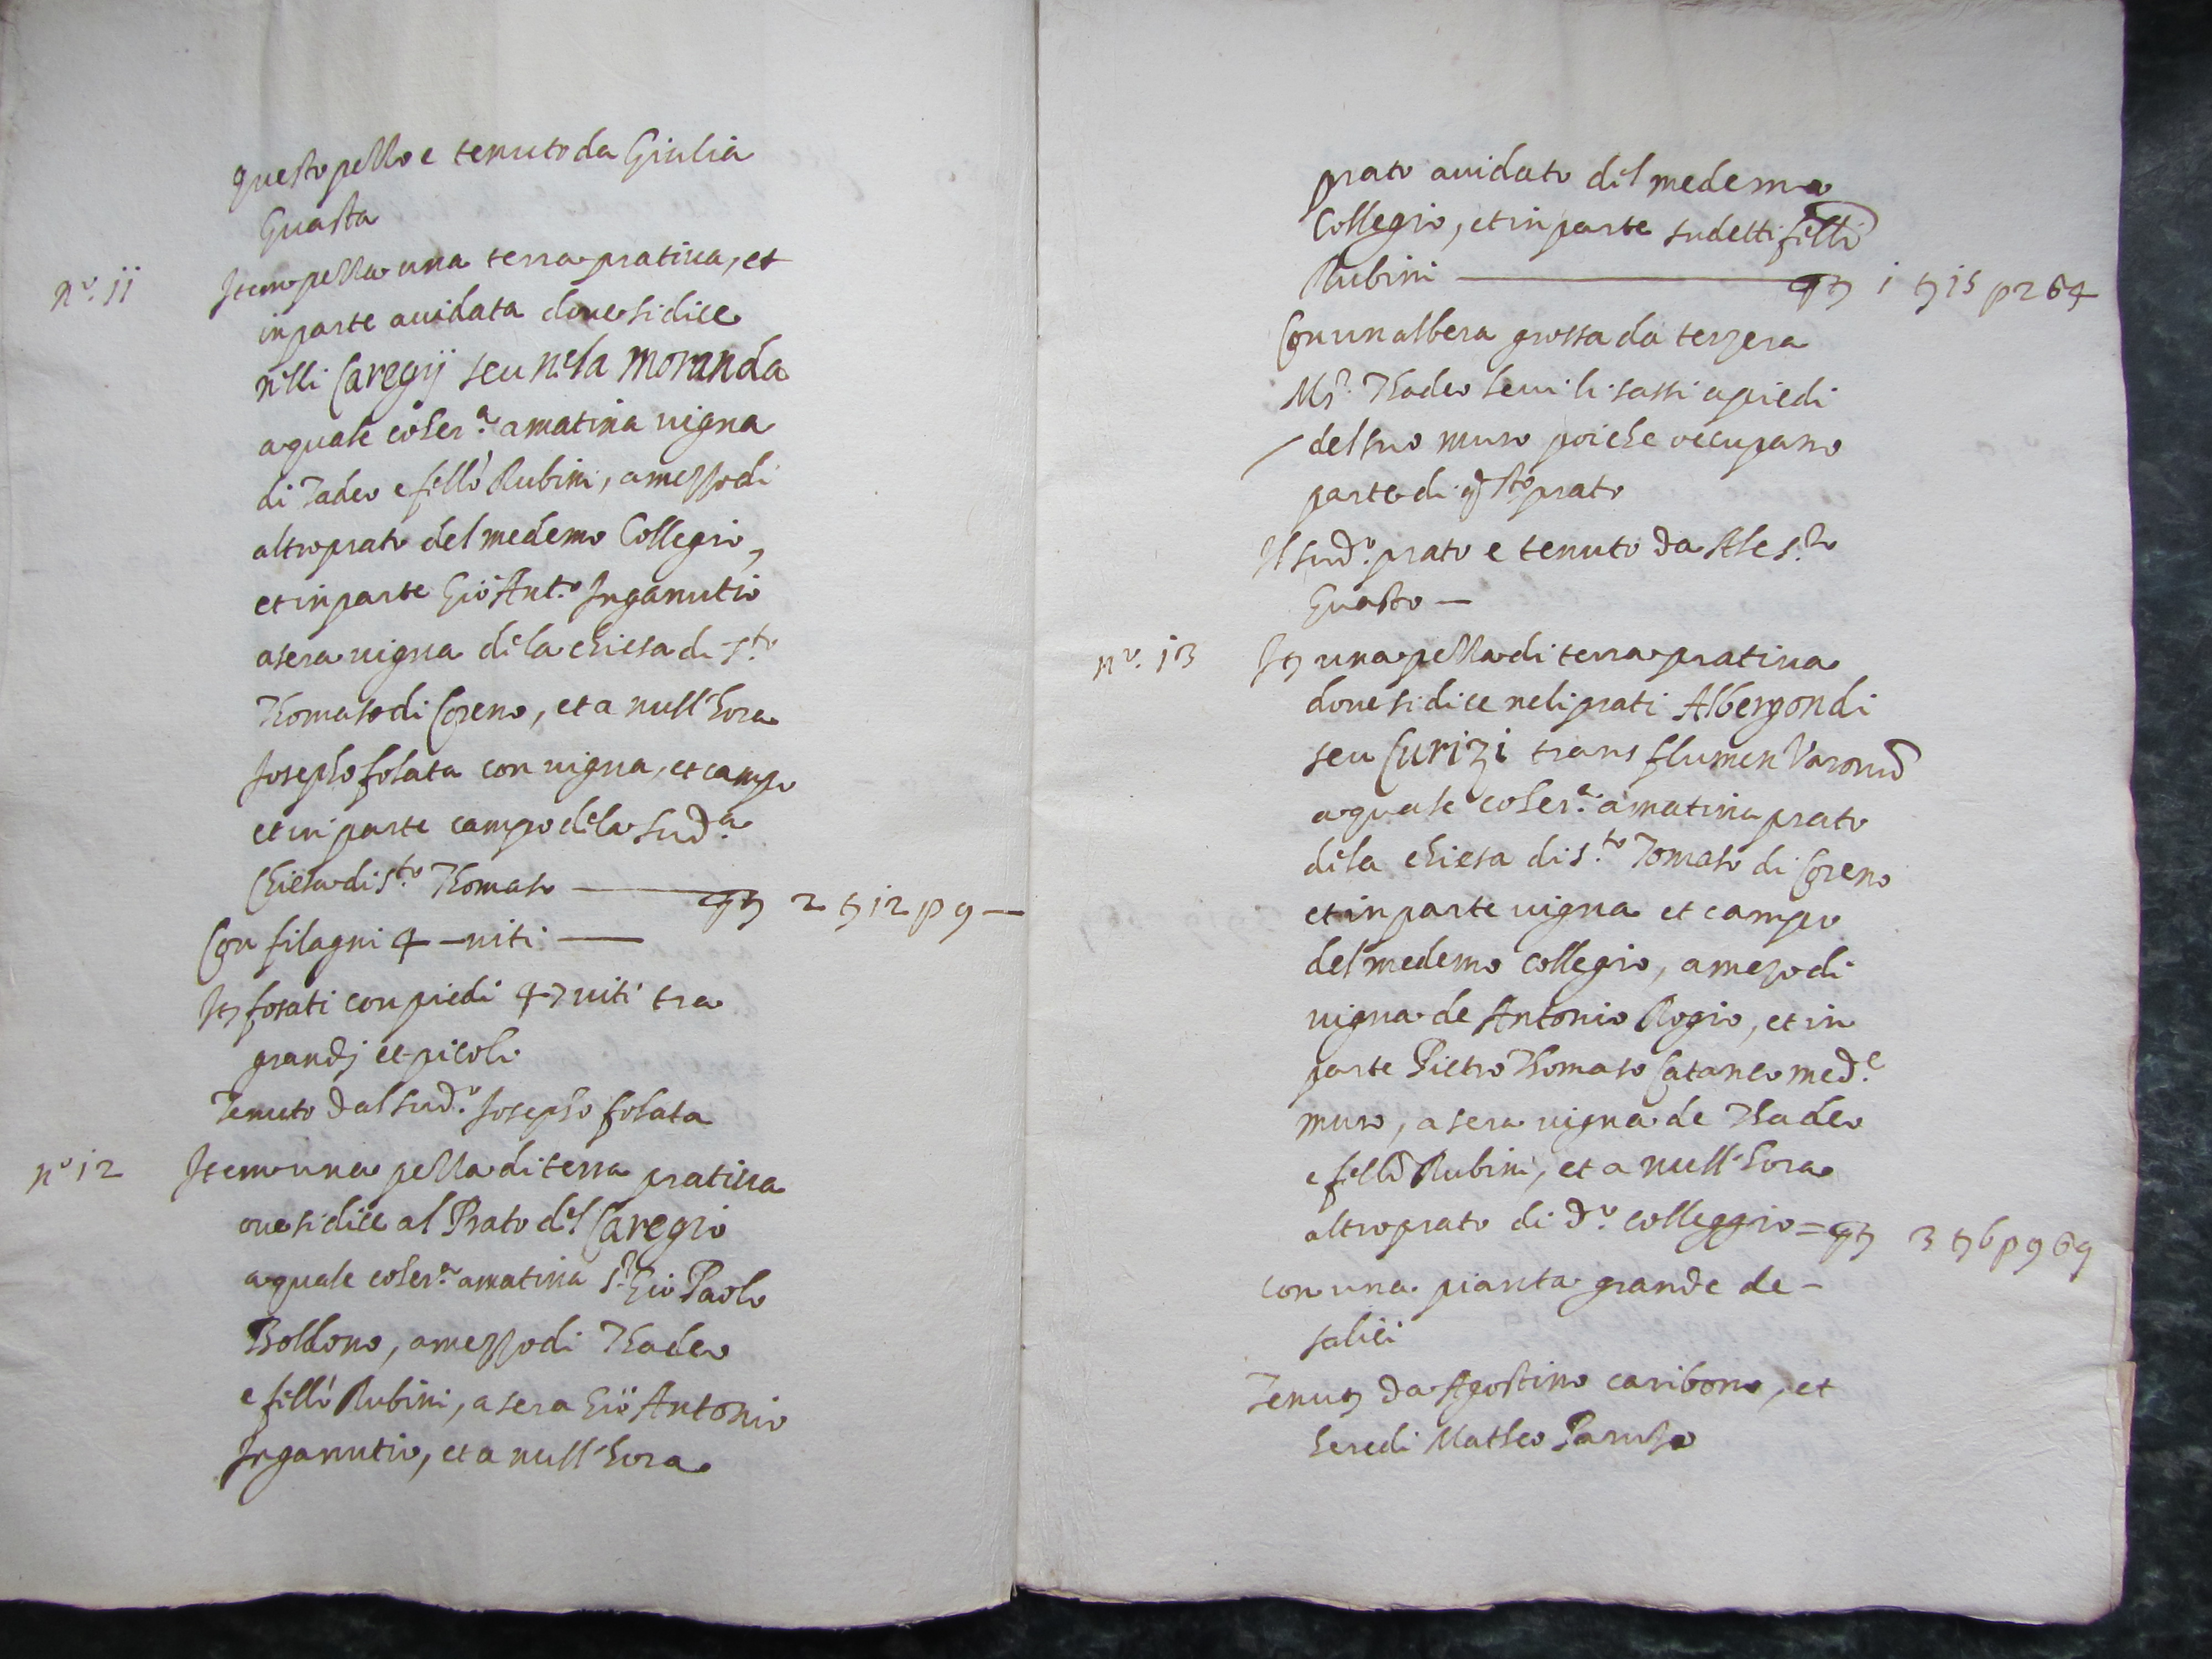 questo pezzo e tenuto da Giulia
Guasta
n.º 11 Item pezza una terra pratiua, et
in parte auidata doue si dice
nelli Caregij seu nela Moranda
a quale coher.ª a matina uigna
di Tadeo e felli Rubini, a mezzodi
altro prato del medemo Collegio,
et in parte Gio Ant.º Inganutio
a sera uigna dela chiesa di S.to
Thomaso di Coreno, et a null'hora
Josepho folata con uigna, et campo
et in parte campo dela sud.ª
Chiesa di S.to Thomaso — 2 12 p 9 —
Con filagni 4 — uiti —
It fosati con piedi 47 uiti tra
grandj et picoli
Tenuto dal sud.º Josepho folata
n.º 12 Item una pezza di terra pratiua
oue si dice al Prato del Caregio
a quale coher.ª a matina S.r Gio Paolo
Boldono, a mezzodi Thadeo
e felli Rubini, a sera Gio Antonio
Inganutio, et a null'hora
prato auidato del medemo
Collegio, et in parte sudetti felli
Rubini — 1 15 p 2 64
Con un albera grossa da terzera
M.r Thadeo leui li sassi a piedi
del suo muro poiche occupano
parte di q.sto prato
Il sud.º prato e tenuto da Ales.ro
Guasto —
n.º 13 It una pezza di terra pratiua
doue si dice neli prati Albergondi
seu Curizi trans flumen Varoni
a quale coher.ª a matina prato
dela chiesa di S.to Tomaso di Coreno
et in parte uigna et campo
del medemo collegio, a mezodi
uigna de Antonio Rogio, et in
parte Pietro Thomaso Cataneo med.e
muro, a sera uigna de Thadeo
e felli Rubini, et a null'hora
altro prato di d.º colleggio = 3 6 p 9 69
con una pianta grande de -
salici
Tenut da Agostino caribono, et
heredi Matheo